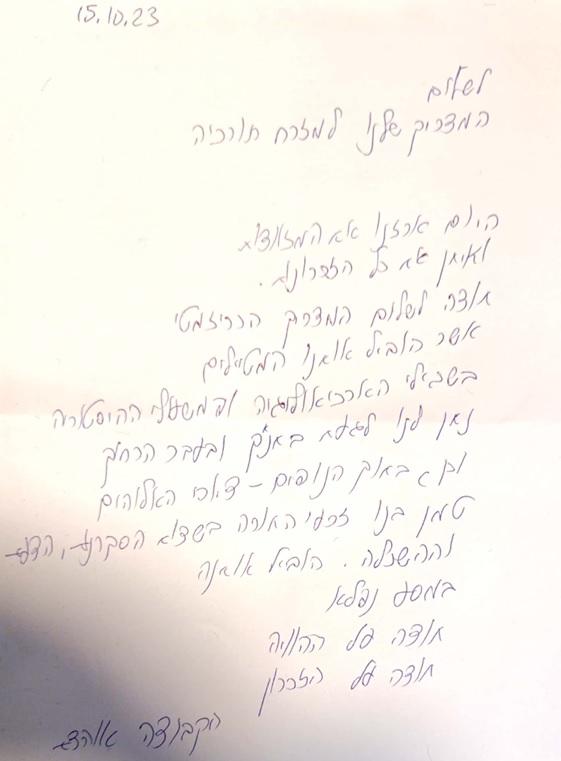 15.10.23
לשלום
המדריך שלנו למזרח תורכיה
היום ארזנו את המזוודות
ואיתן את כל הזכרונות.
תודה לשלום המדריך הכריזמטי
אשר הוביל אותנו המטיילים
בשבילי הארכיאולוגיה ובמשעולי ההיסטוריה
נתן לנו לגעת בתנ"ך ובעבר הרחוק
וכן באוך הנופים - ציורי האלוהים
טמן בנו זרעי הארה בשדא הסקרנות, הדעת
וההשכלה. הוביל אותנו
במסע נפלא
תודה על החוויה
תודה על הזכרון
הקבוצה אוהבת